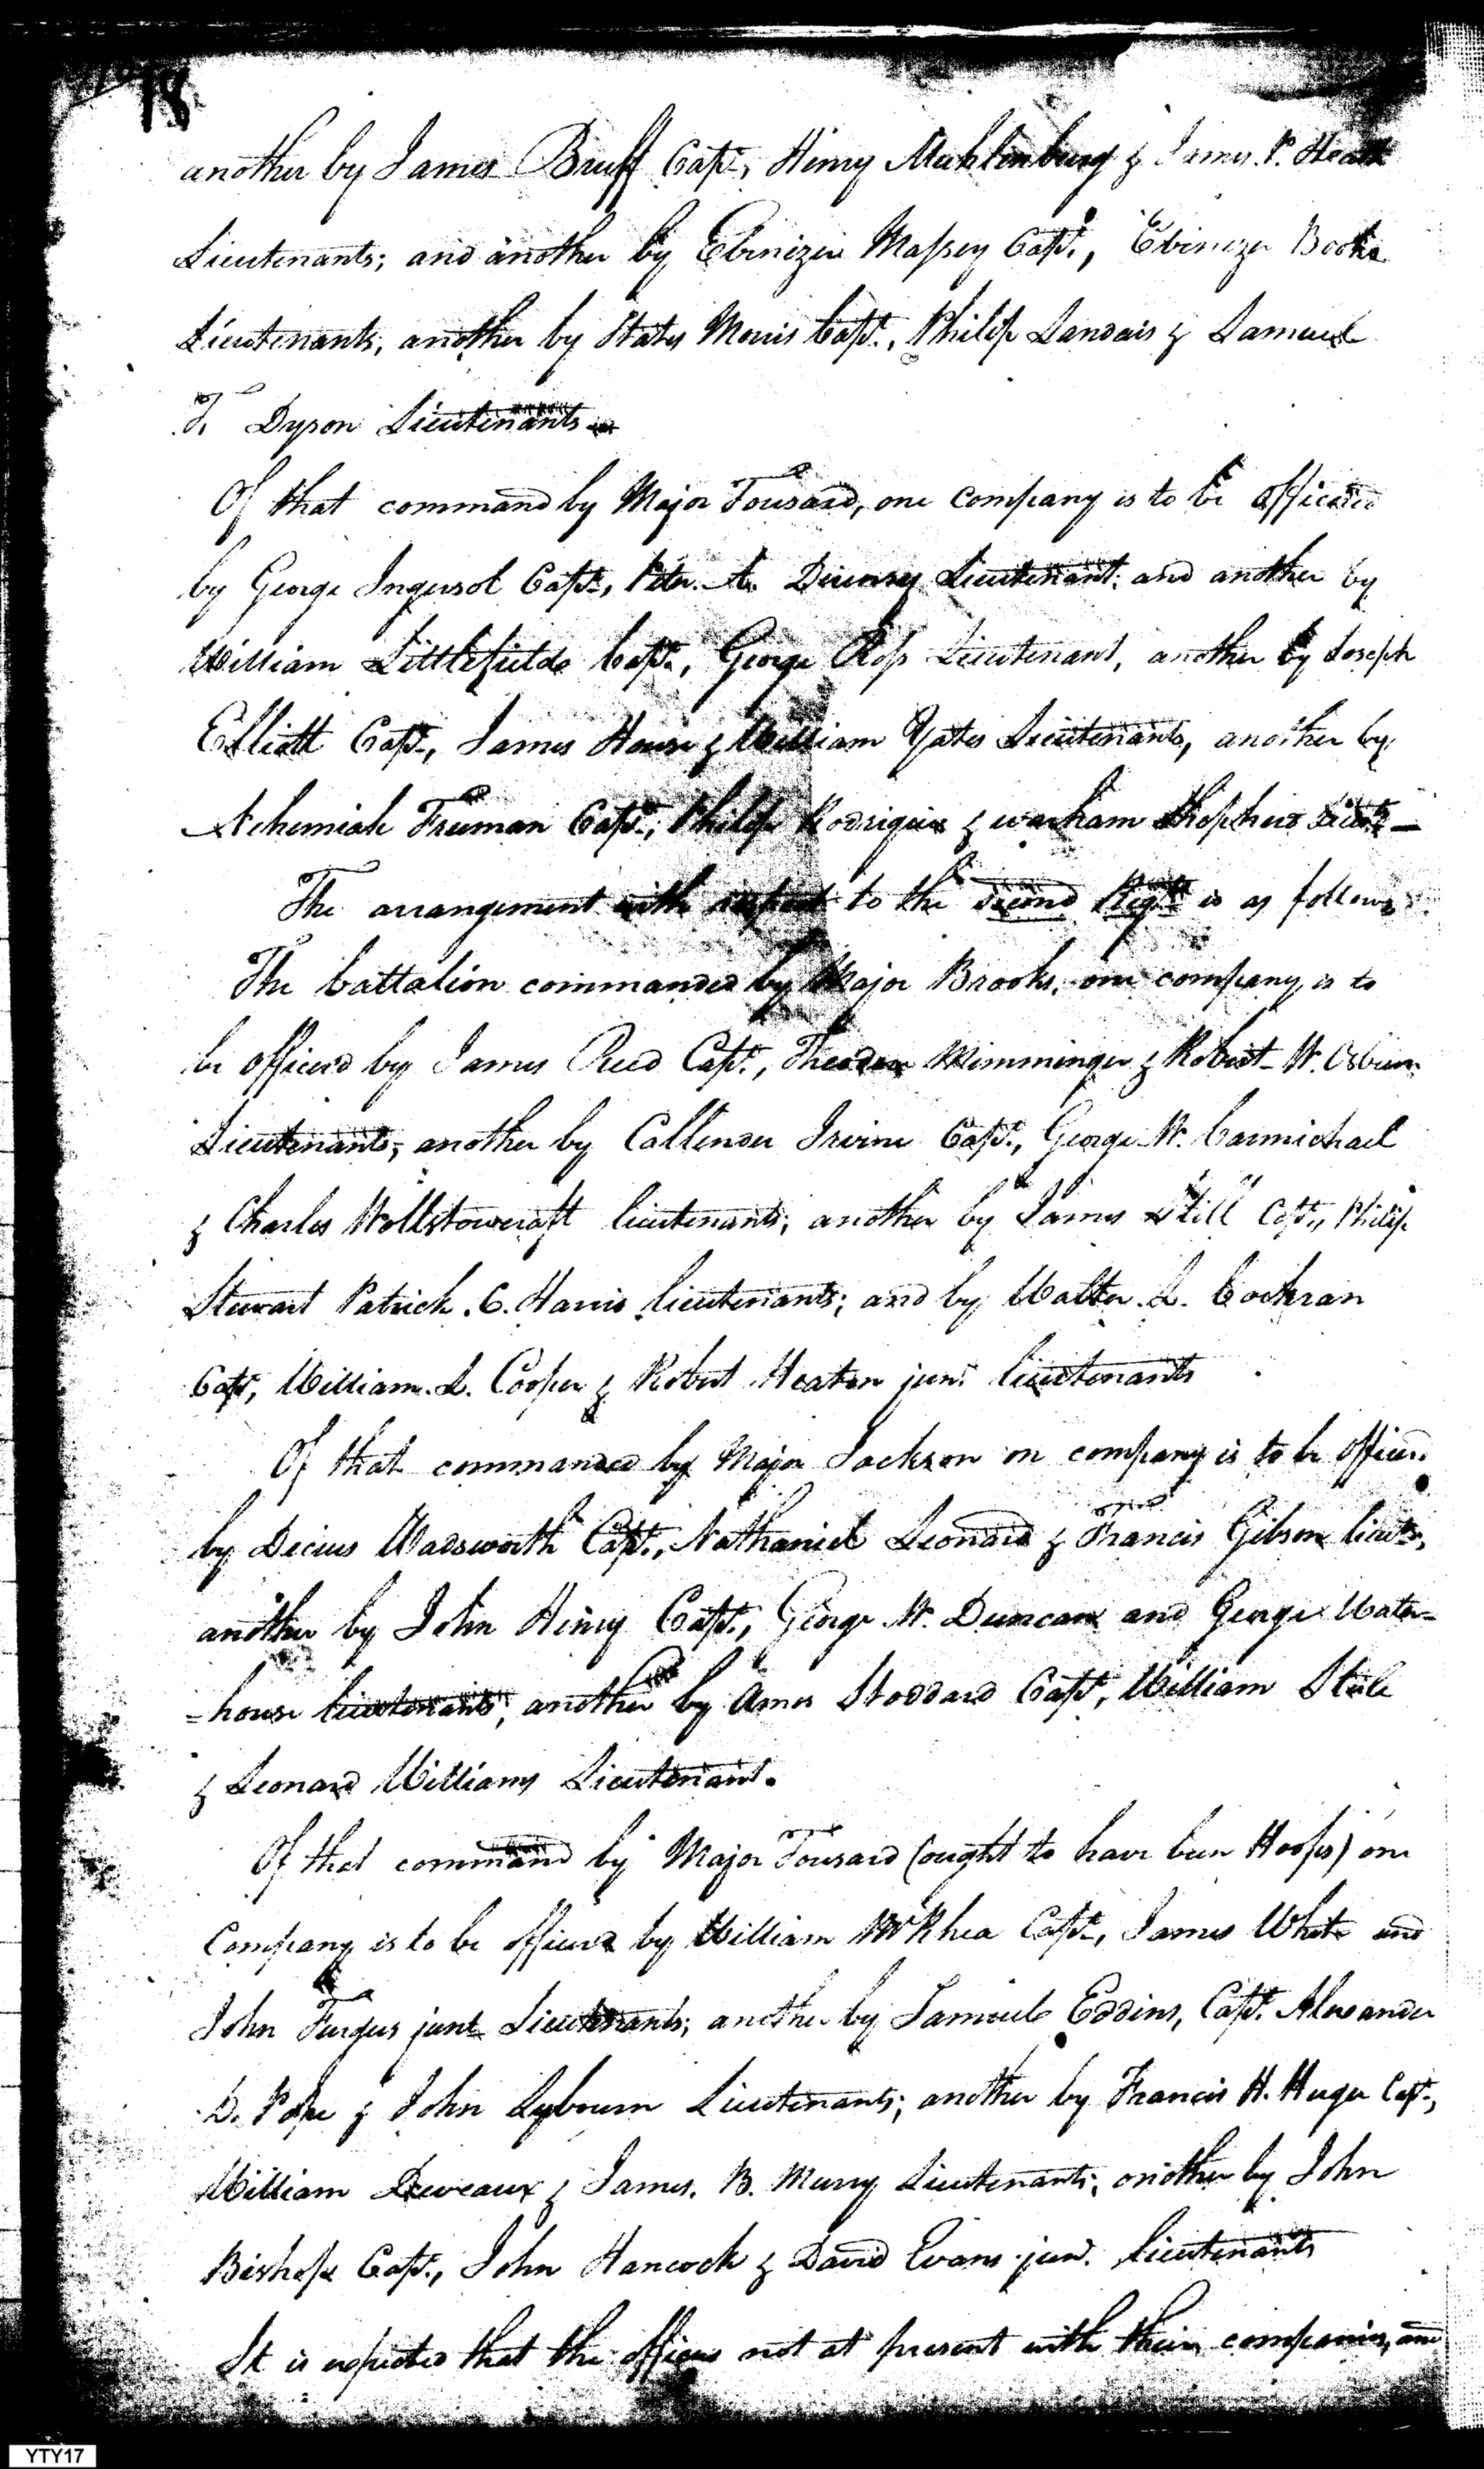 18
another by James Bruff Capt., Henry Muhlenburg & James P. Heath
Lieutenants; and another by Ebenezer Massey Capt., Ebenezer Beebe
Lieutenants, another by Staty Morris Capt., Philip Landais & Samuel
T. Dyson Lieutenants
Of that command by Major Tousard, one company is to be officered
by George Ingersol Capt., Peter A. Lieutenant, and another by
William Littlefield Capt., George Ross Lieutenant, another by Joseph
Elliott Capt., James House & William Yates Lieutenants, another by
Nehemiah Freeman Capt., Philip Rodrigue & warham Lieuts —
The arrangement with respect to the second Regt. is as follows
The battalion commanded by Major Brooks, one company is to
be officerd by James Reed Capt., Theodore Memminger & Robert W. Osburn
Lieutenants, another by Callender Irvine Capt., George W. Carmichael
& Charles Wollstowcraft lieutenants; another by James Still Capt., Philip
Stewart Patrick. C. Harris lieutenants; and by Walter. L. Cochran
Capt., William. L. Cooper & Robert Heaton junr. lieutenants
Of that commanded by Major Jackson on company is to be officerd
by Decius Wadsworth Capt., Nathaniel Leonard & Francis Gibson lieuts,
another by John Henry Capt., George W. Duncan and George Water=
=house lieutenants; another by Amos Stoddard Capt., William Stele
& Leonard Williams Lieutenant.
Of that command by Major Tousard (ought to have been Hoops) one
Company is to be officerd by William McRhea Capt., James White and
John Fergus junr. Lieutenants; another by Samuel Eddins, Capt. Alexander
D. Pope & John Lybourn Lieutenants; another by Francis H. Huger Capt.,
William Deveaux & James. B. Murry Lieutenants; another by John
Bishop Capt., John Hancock & David Evans jun. lieutenants
It is expected that the officers not at present with their companies, and
YTY17